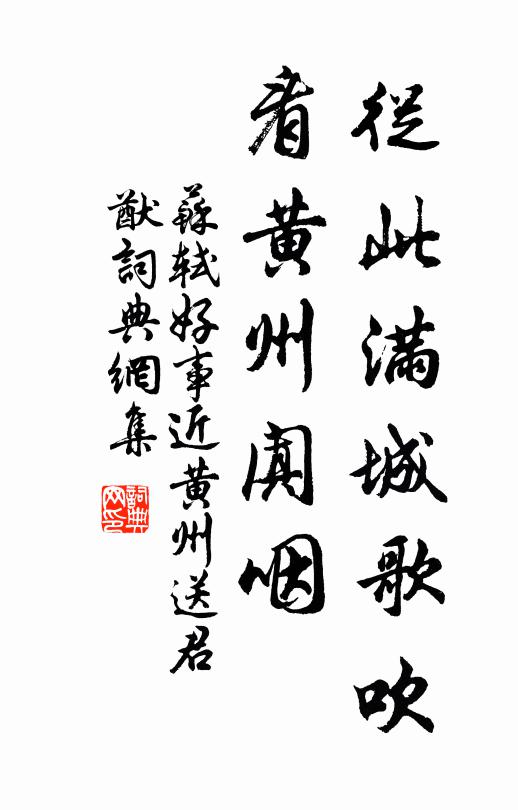 從此滿城歌吹
看黃州闐咽
蘇軾好事近黃州送君
猷詞典網集
詞典
网印